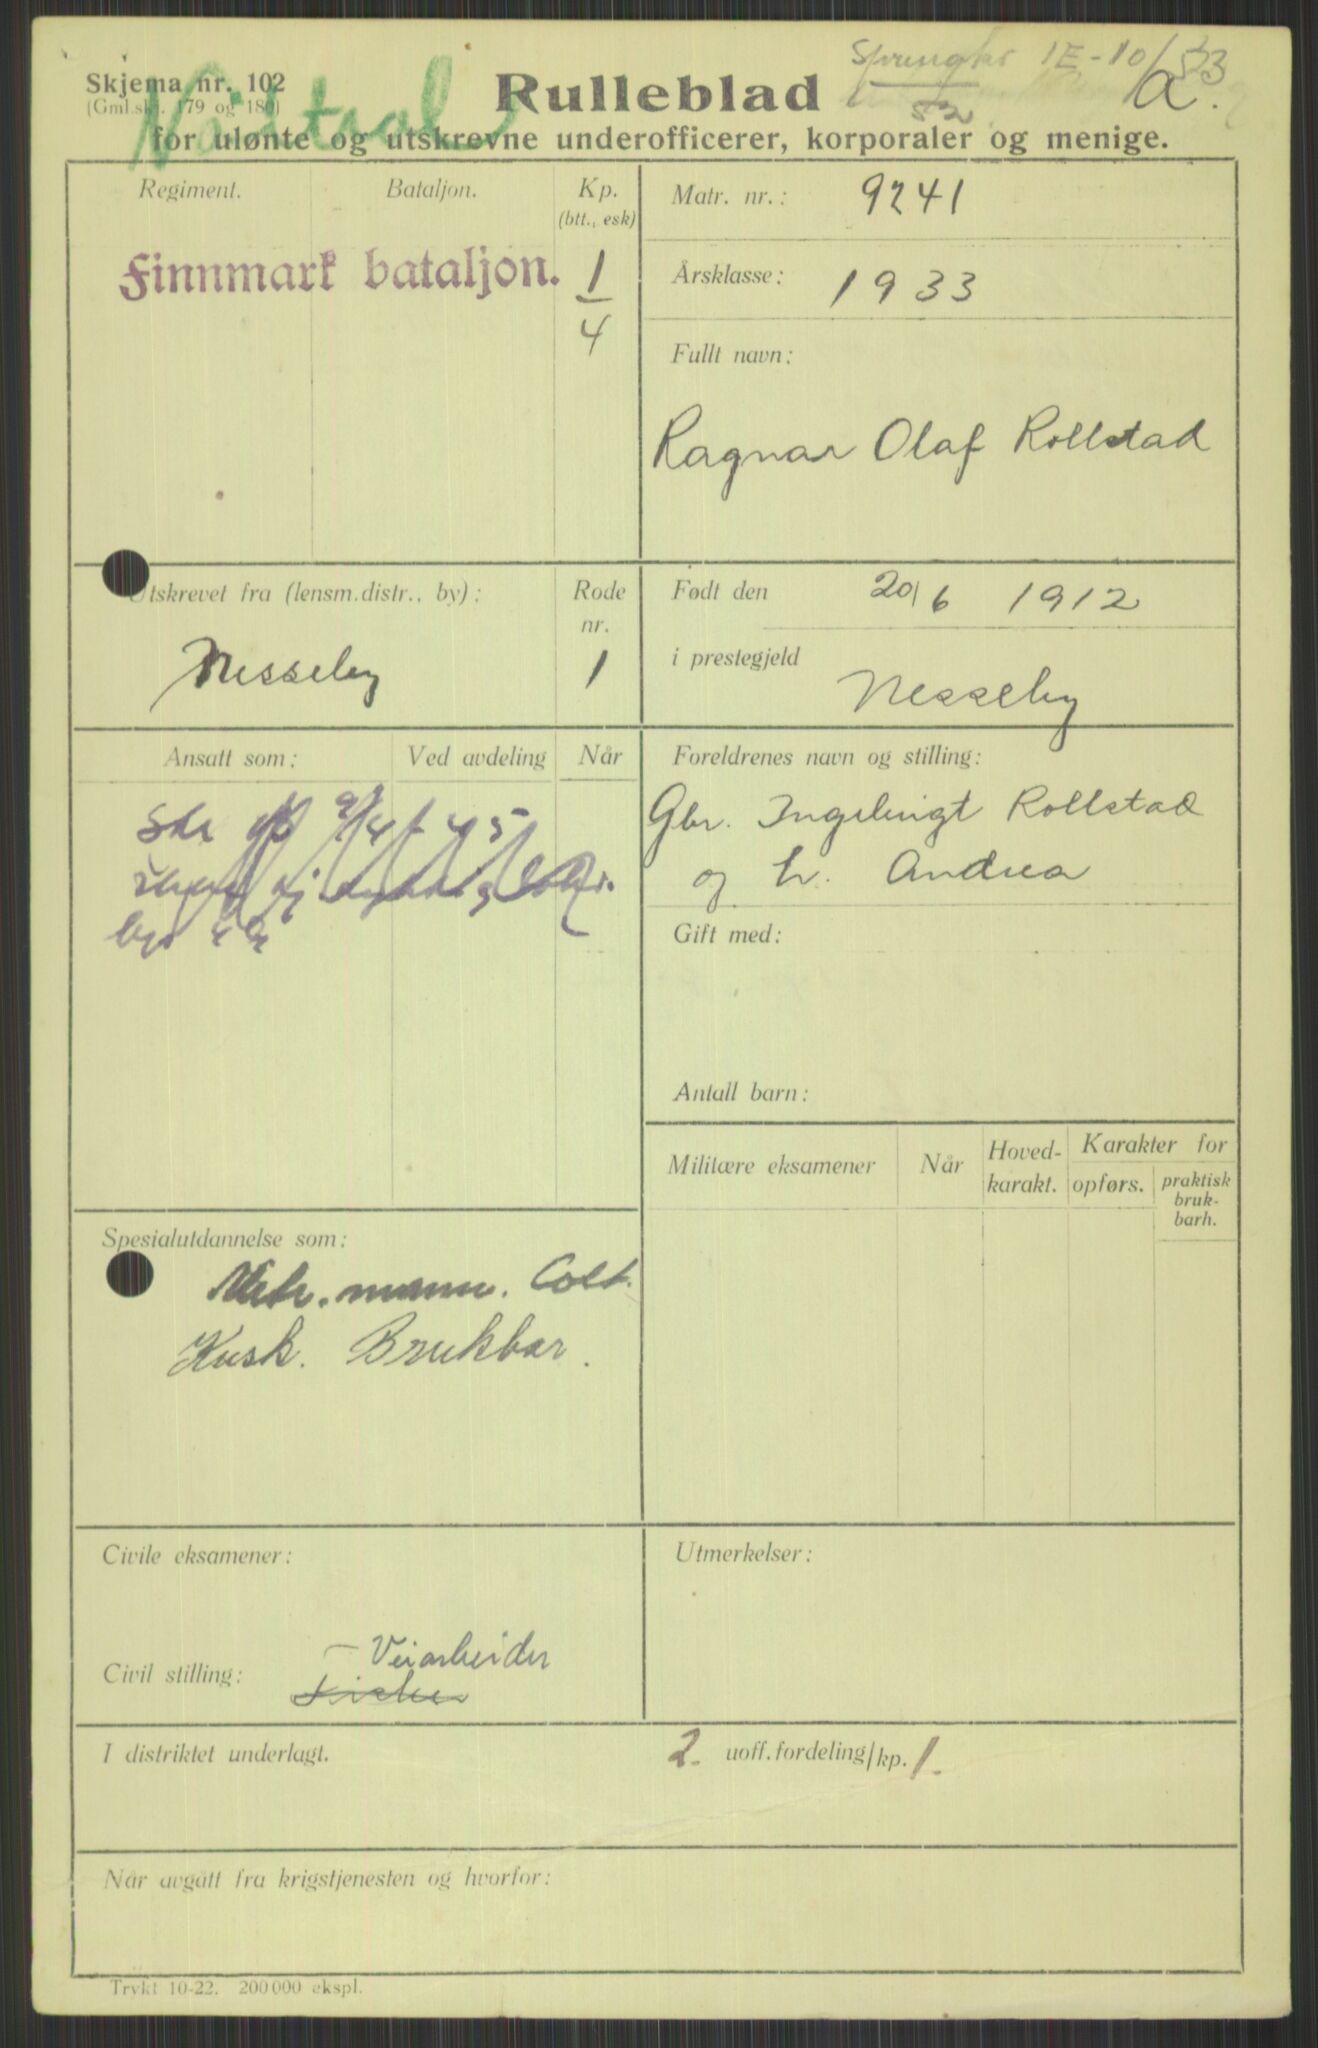 Skjema nr. 102
(Gml.skj. 179 og 180)
Rulleblad
1E-10/33
52
a.
for ulønte og utskrevne underofficerer, korporaler og menige.
Regiment.
Bataljon.
Kp.
(btt., esk)
Finnmark bataljon.
1
4
Matr. nr.: 9241
Årsklasse: 1933
Fullt navn:
Ragnar Olaf Rollstad
Utskrevet fra (lensm.distr., by):
Nesseby
Rode
nr.
1
Født den 20/6 1912
i prestegjeld
Nesseby
Ansatt som:
Ved avdeling
Når
Foreldrenes navn og stilling:
Gbr. Ingebrigt Rollstad
og h. Andrea
Gift med:
Antall barn:
Militære eksamener
Når
Hoved-
karakt.
Karakter for
opførs.
praktisk
bruk-
barh.
Spesialutdannelse som:
Mitr. mann. Colt.
Kusk. Brukbar.
Civile eksamener:
Utmerkelser:
Veiarbeider
Civil stilling: Fisker
I distriktet underlagt.
2. uoff.fordeling/kp. 1.
Når avgått fra krigstjenesten og hvorfor:
Trykt 10-22. 200 000 ekspl.